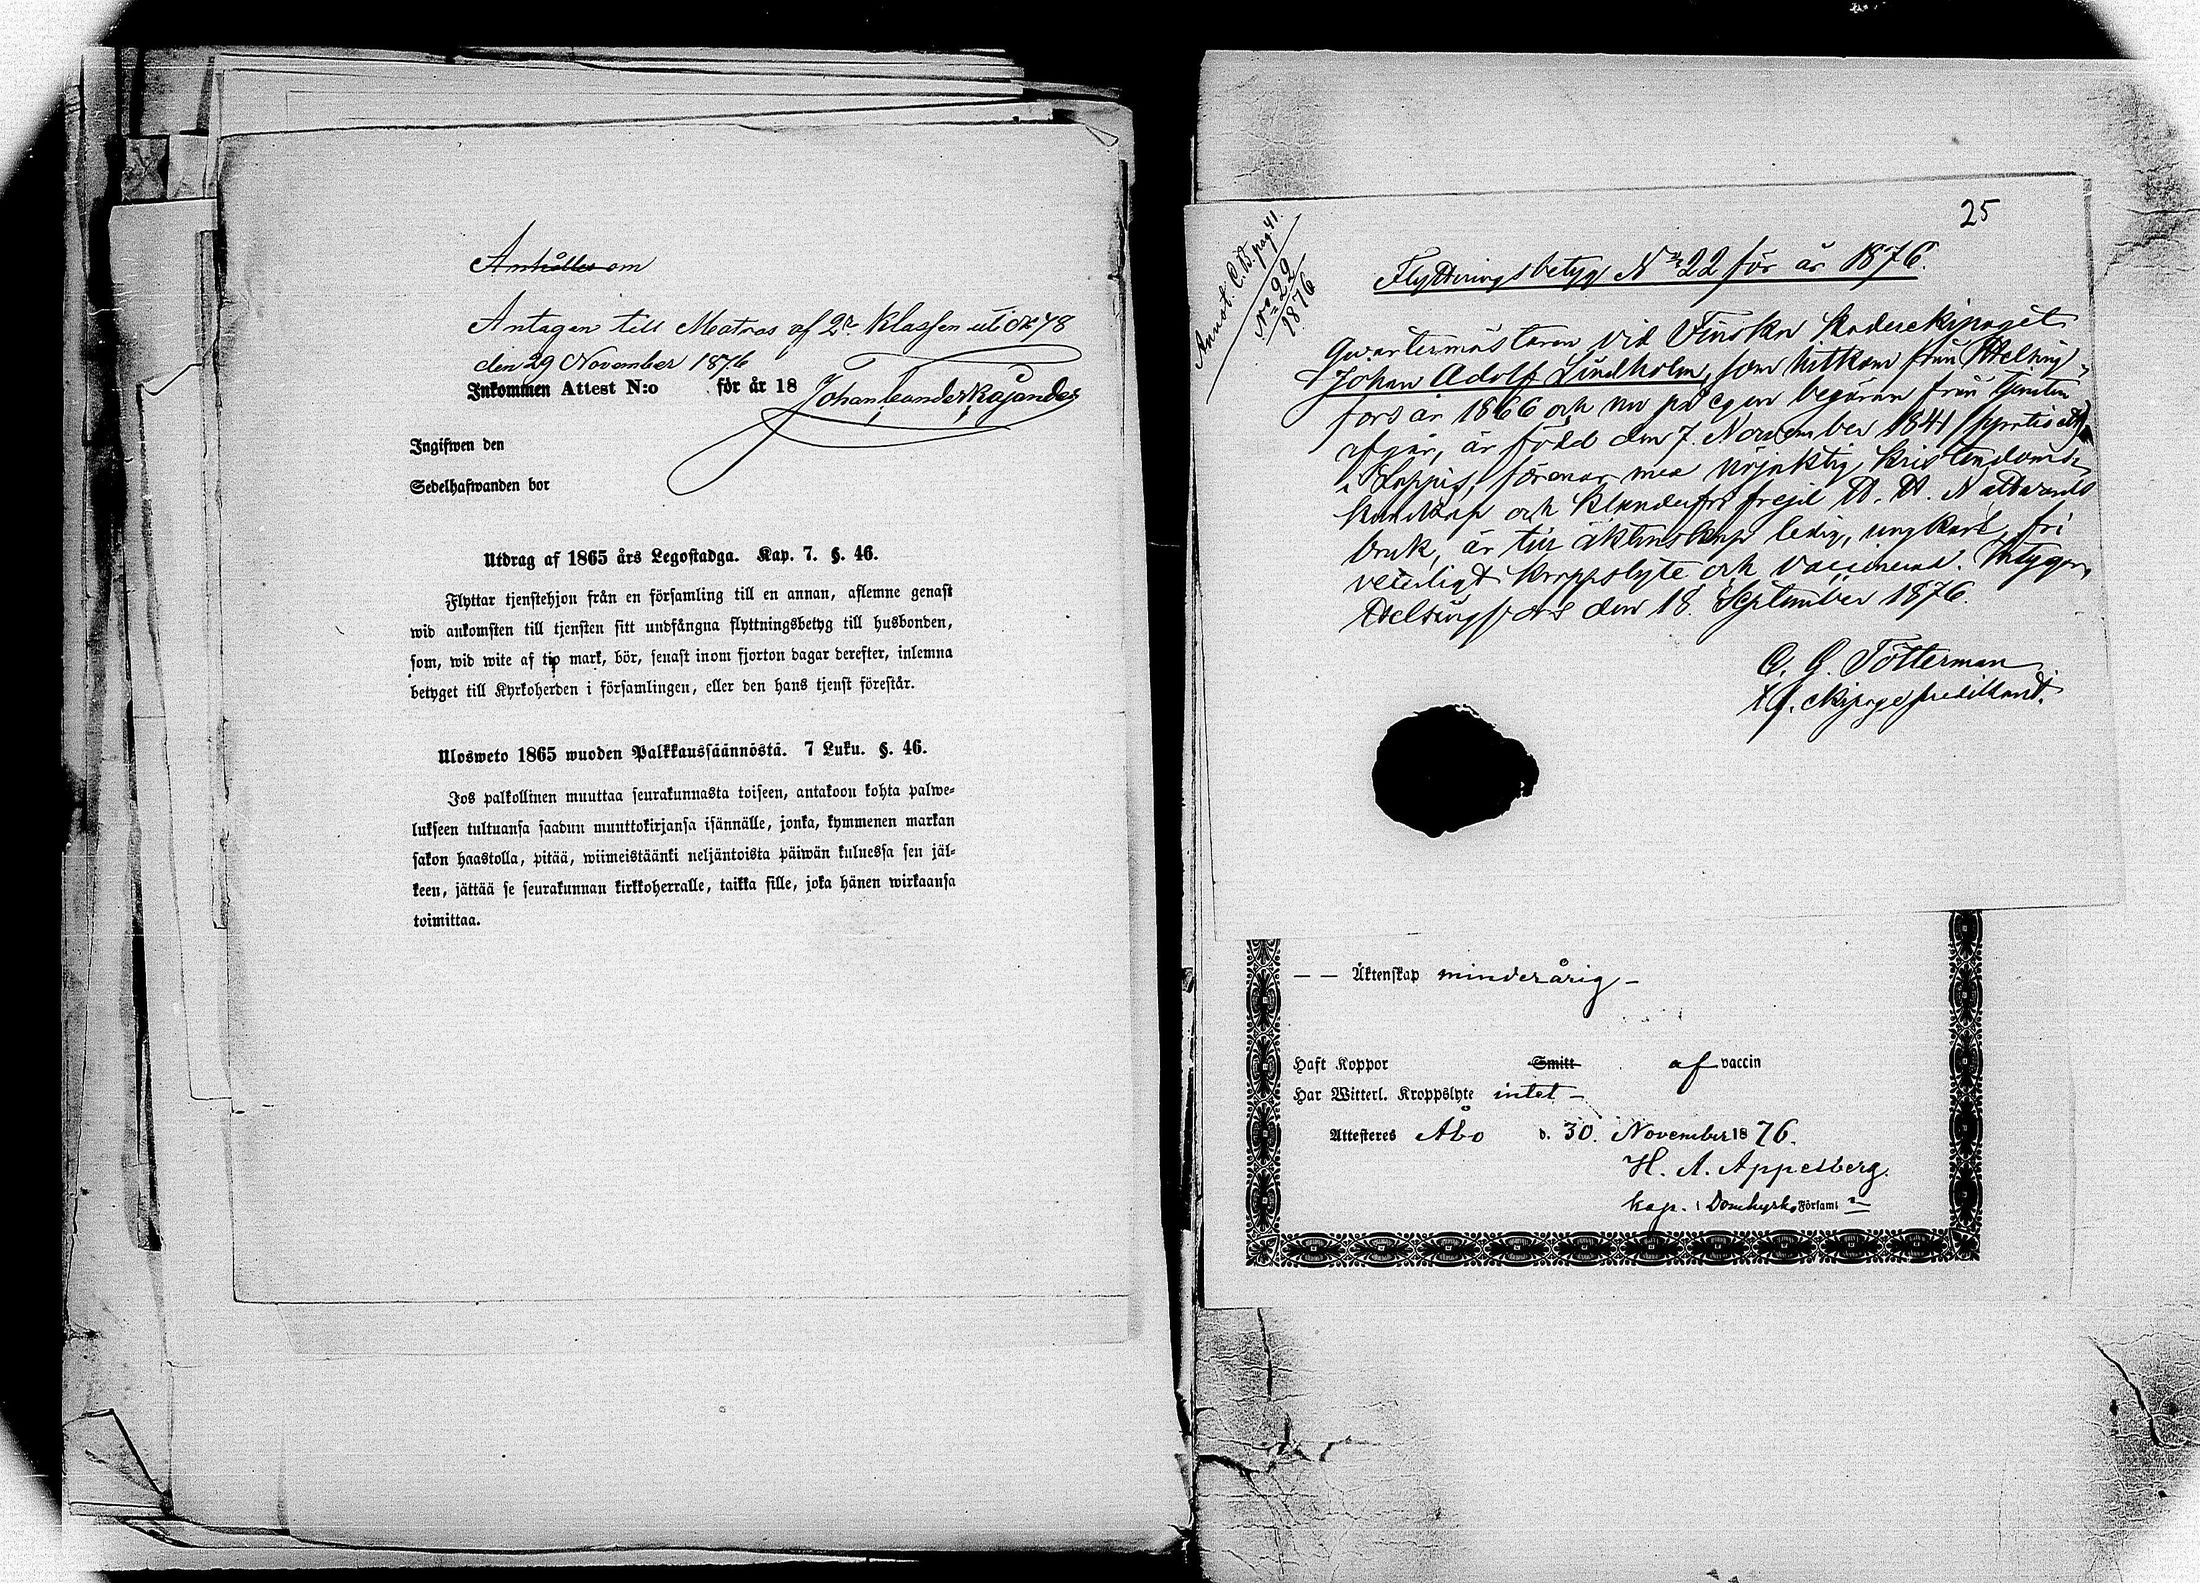 Anhålles om
Antagen till Matros af 2a Klassen uti No 48
den 29 November 1876
Inkommen Attest N:o för år 18
Johan Leander Kajander
Ingifwen den
Sedelhafwanden bor
Utdrag af 1865 års Legostadga. Kap. 7. §. 46.
Flyttar tjenstehjon från en församling till en annan, aflemne genast
wid ankomsten till tjensten sitt undfångna flyttningsbetyg till husbonden,
som, wid wite af tio mark, bör, senast inom fjorton dagar derefter, inlemna
betyget till Kyrkoherden i församlingen, eller den hans tjenst förestår.
Ulosweto 1865 wuoden Palkkaussäännöstä. 7 Luku. §. 46.
Jos palkollinen muuttaa seurakunnasta toiseen, antakoon kohta palwe-
lukseen tultuansa saadun muuttokirjansa isännälle, jonka, kymmenen markan
sakon haastolla, pitää, wiimeistäänki neljäntoista päiwän kuluessa sen jäl-
keen, jättää se seurakunnan kirkkoherralle, taikka sille, joka hänen wirkaansa
toimittaa.
25
Annot. C.B. pag. 41.
No 22
1876
Flyttningsbetyg No 22 för år 1876.
Qvartermästaren vid Finska Kaderekipaget
Johan Adolf Lindholm, som hitkom från Helsing-
fors år 1866 och nu på egen begäran från tjensten
afgår, är född den 7. November 1841
i Loppis, förenar med nöjaktig kristendoms-
kunskap och klanderfri frejd H. H. Nattvards
bruk, är till äktenskap ledig, ungkarl, fri
veterligt kroppslyte och vaccinerad. Intygar,
Helsingfors den 18. September 1876.
C. G. Tötterman
Ekipagepredikant.
— — Äktenskap minderårig —
Haft Koppor Smitt af vaccin
Har Witterl. Kroppslyte intet —
Attesteras Åbo d. 30. November 1876.
H. A. Appelberg.
Kap. i Domkyrko Församl